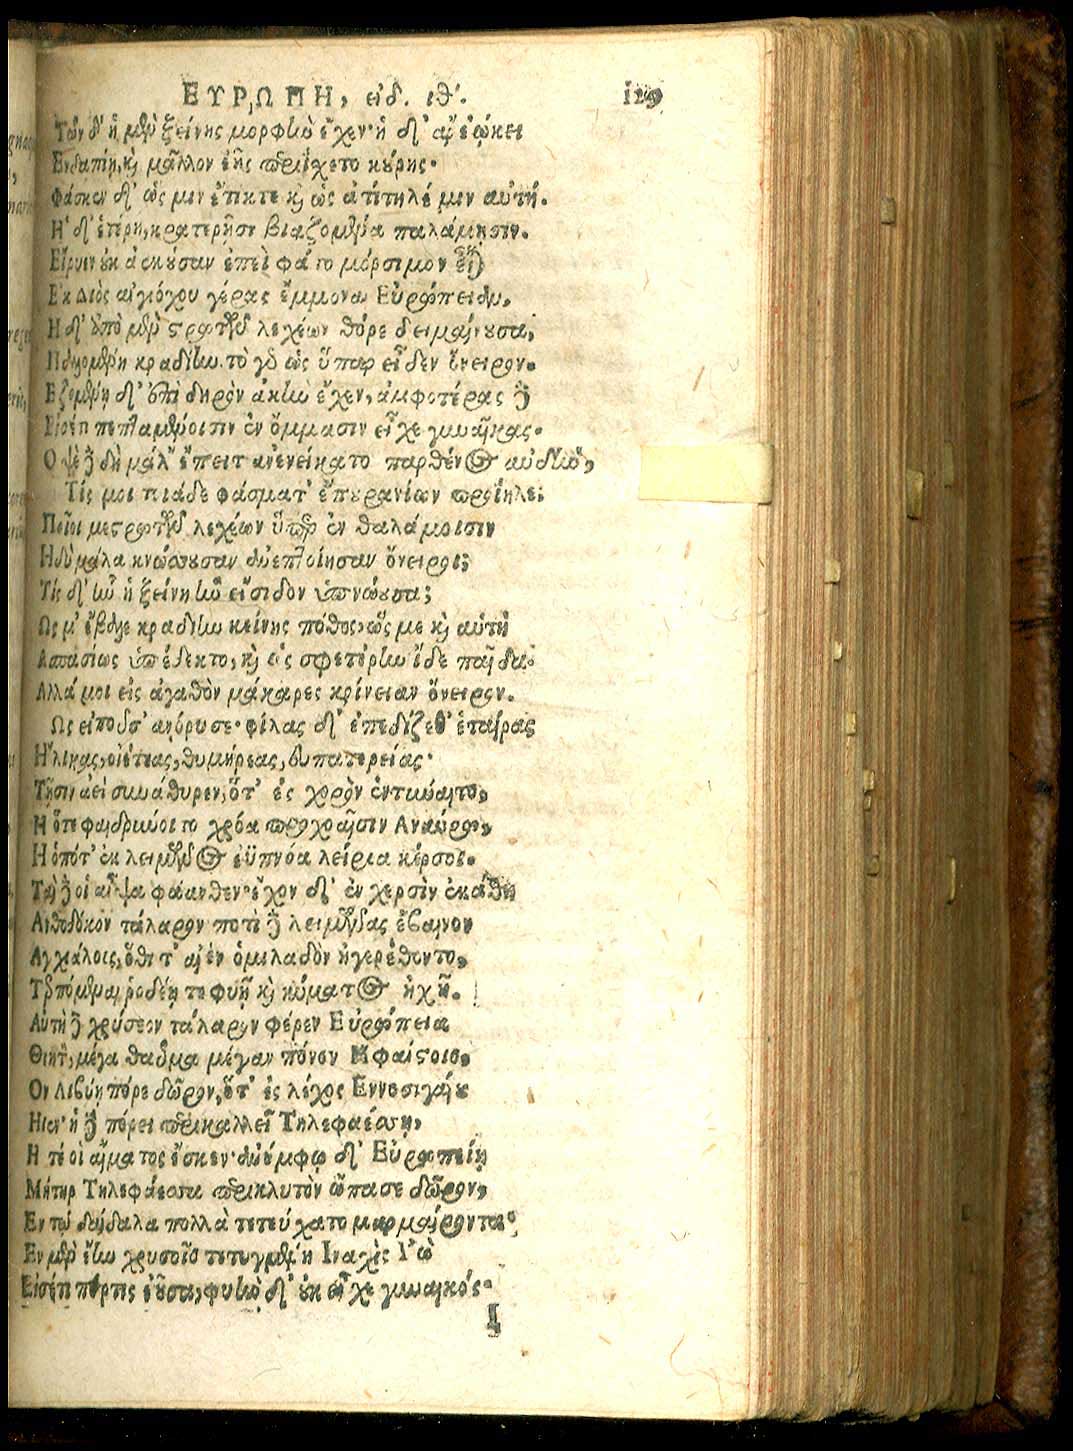 ΕΥΡΩΠΗ, εἰδ. ιθ'. 129
Τῶν δ' ἡ μὲν ξείνης μορφὴν ἔχεν· ἡ δ' ἄρ' ἐῴκει
Ενδαπίῃ, καὶ μᾶλλον ἑῆς περιΐχετο κούρης·
Φάσκεν δ' ὥς μιν ἔτικτε καὶ ὡς ἀτίτηλέ μιν αὐτή.
Η δ' ἑτέρη, κρατερῇσι βιαζομένα παλάμῃσιν.
Εἴρυεν οὐκ ἀεκοῦσαν ἐπεὶ φάτο μόρσιμον εἶναι
Εκ Διὸς αἰγιόχου γέρας ἔμμεναι Εὐρώπειαν.
Η δ' ἀπὸ μὲν στρωτῶν λεχέων θόρε δειμαίνουσα,
Παλλομένη κραδίην. τὸ γὰρ ὡς ὕπαρ εἶδεν ὄνειρον.
Εζομένη δ' ἐπὶ δηρὸν ἀκὴν ἔχεν, ἀμφοτέρας δὲ
Εἰσέτι πεπταμένοισιν ἐν ὄμμασιν εἶχε γυναῖκας.
Οψὲ δὲ δὴ μάλ' ἔπειτ' ἀνενείκατο παρθένος αὐδὴν,
Τίς μοι τοιάδε φάσματ' ἐπουρανίων προΐηλε;
Ποῖοι με στρωτῶν λεχέων ὕπερ ἐν θαλάμοισιν
Ηδὺ μάλα κνώσσουσαν ἀνεπτοίησαν ὄνειροι;
Τίς δ' ἦν ἡ ξείνη ἣν εἴσιδον ὑπνώουσα;
Ως μ' ἔβαλε κραδίην κείνης πόθος, ὥς με καὶ αὐτὴ
Ασπασίως ὑπέδεκτο, καὶ ὡς σφετέρην ἴδε παῖδα.
Αλλά μοι εἰς ἀγαθὸν μάκαρες κρίνειαν ὄνειρον.
Ως εἰποῦσ' ἀνόρουσε· φίλας δ' ἐπεδίζεθ' ἑταίρας
Ηλικας, οἰέτεας, θυμήρεας, εὐπατερείας·
Τῇσιν ἀεὶ συνάθυρεν, ὅτ' ἐς χορὸν ἐντύναιτο,
Η ὅτε φαιδρύνοιτο χρόα προχοαῖσιν Αναύρου,
Η ὁπότ' ἐκ λειμῶνος ἐΰπνοα λείρια κέρσοι.
Ταὶ δὲ οἱ αἶψα φάανθεν· ἔχον δ' ἐν χερσὶν ἑκάστη
Ανθοδόκον τάλαρον ποτὶ δὲ λειμῶνας ἔβαινον
Αγχιάλοις, ὅθι τ' αἰὲν ὁμιλαδὸν ἠγερέθοντο,
Τερπόμεναι ῥοδέῃ τε φυῇ καὶ κύματος ἠχῇ.
Αὐτὴ δὲ χρύσεον τάλαρον φέρεν Εὐρώπεια
Θηητὸν, μέγα θαῦμα μέγαν πόνον Ηφαίστοιο,
Ον Λιβύῃ πόρε δῶρον, ὅτ' ἐς λέχος Εννοσιγαίου
Ηϊεν· ἡ δὲ πόρεν περικαλλεῖ Τηλεφαέσσῃ,
Η τέ οἱ αἵματος ἔσκεν· ἀνύμφῳ δ' Εὐρωπείῃ
Μήτηρ Τηλεφάεσσα περικλυτὸν ὤπασε δῶρον,
Εν τῷ δαίδαλα πολλὰ τετεύχατο μαρμαίροντα·
Εν μὲν ἔην χρυσοῖο τετυγμένη Ιναχὶς Ι'ὼ
Εἰσέτι πόρτις ἐοῦσα, φυὴν δ' οὐκ εἶχε γυναικός·
I